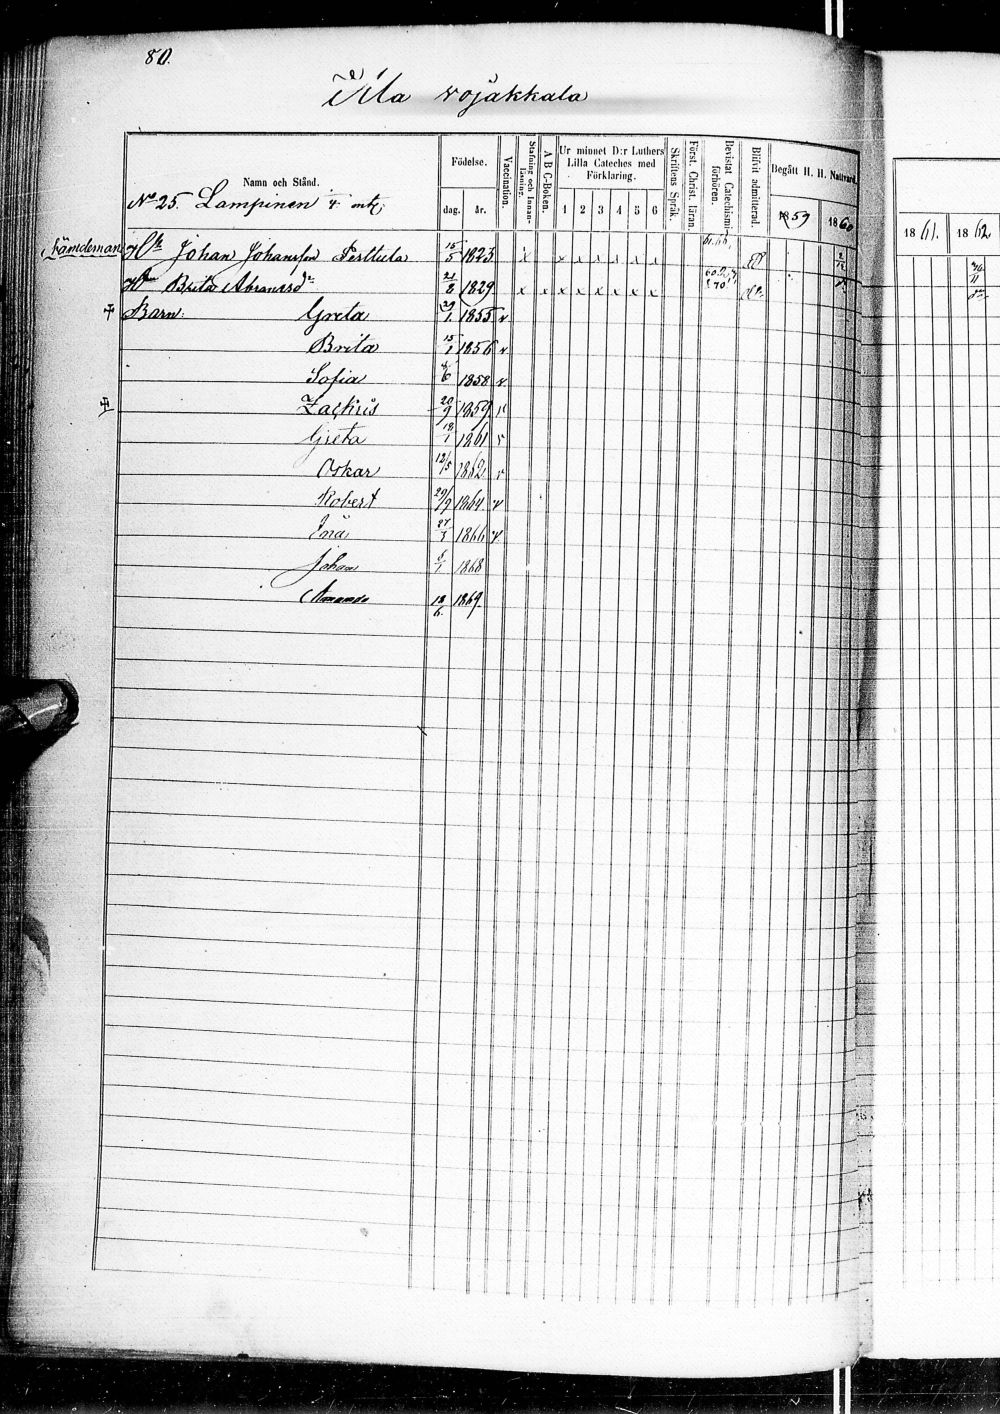 80.
Yla vojakkala
Namn och Stånd.
Födelse.
dag. år.
Vaccination.
Stafning och Innanläsning.
A B C-Boken.
Ur minnet D:r Luthers Lilla Cateches med Förklaring.
1 2 3 4 5 6
Skriftens Språk.
Först. Christ. läran.
Bevistat Catechismiförhören.
Blifvit admitterad.
Begått H. H. Nattvard.
1859 1860 1861. 1862
No 25. Lampinen
Nämdeman Johan Johansson Perttula 15/5 1823 x x x x x x x
Brita Abramsd:r 21/8 1829 x x x x x x x x
Barn: Greta 29/1 1855 v
Brita 15/1 1856 v
Sofia 1858 v
Zackris 20/9 1859 v
Greta 18/1 1861 v
Oskar 12/5 1862 v
Robert 29/9 1864 v
Ina 1866 v
Johan 1868
Amanda 18/6. 1869.